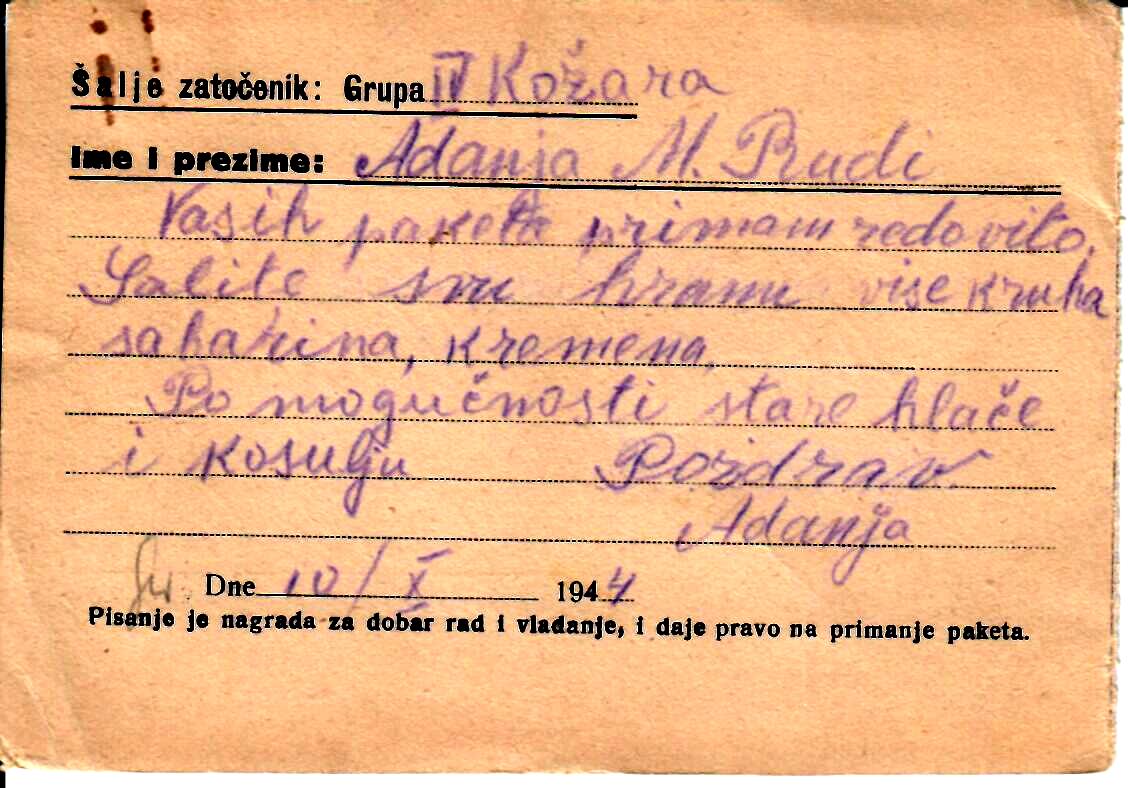 Šalje zatočenik: Grupa IV Kožara
Ime i prezime: Adanja M. Rudi
Vasih paketa primam redovito.
Salite svu hranu vise kruha
saharina, kremena,
Po mogućnosti stare hlače
i kosulju Pozdrav
Adanja
Dne 10/X 1944
Pisanje je nagrada za dobar rad i vladanje, i daje pravo na primanje paketa.